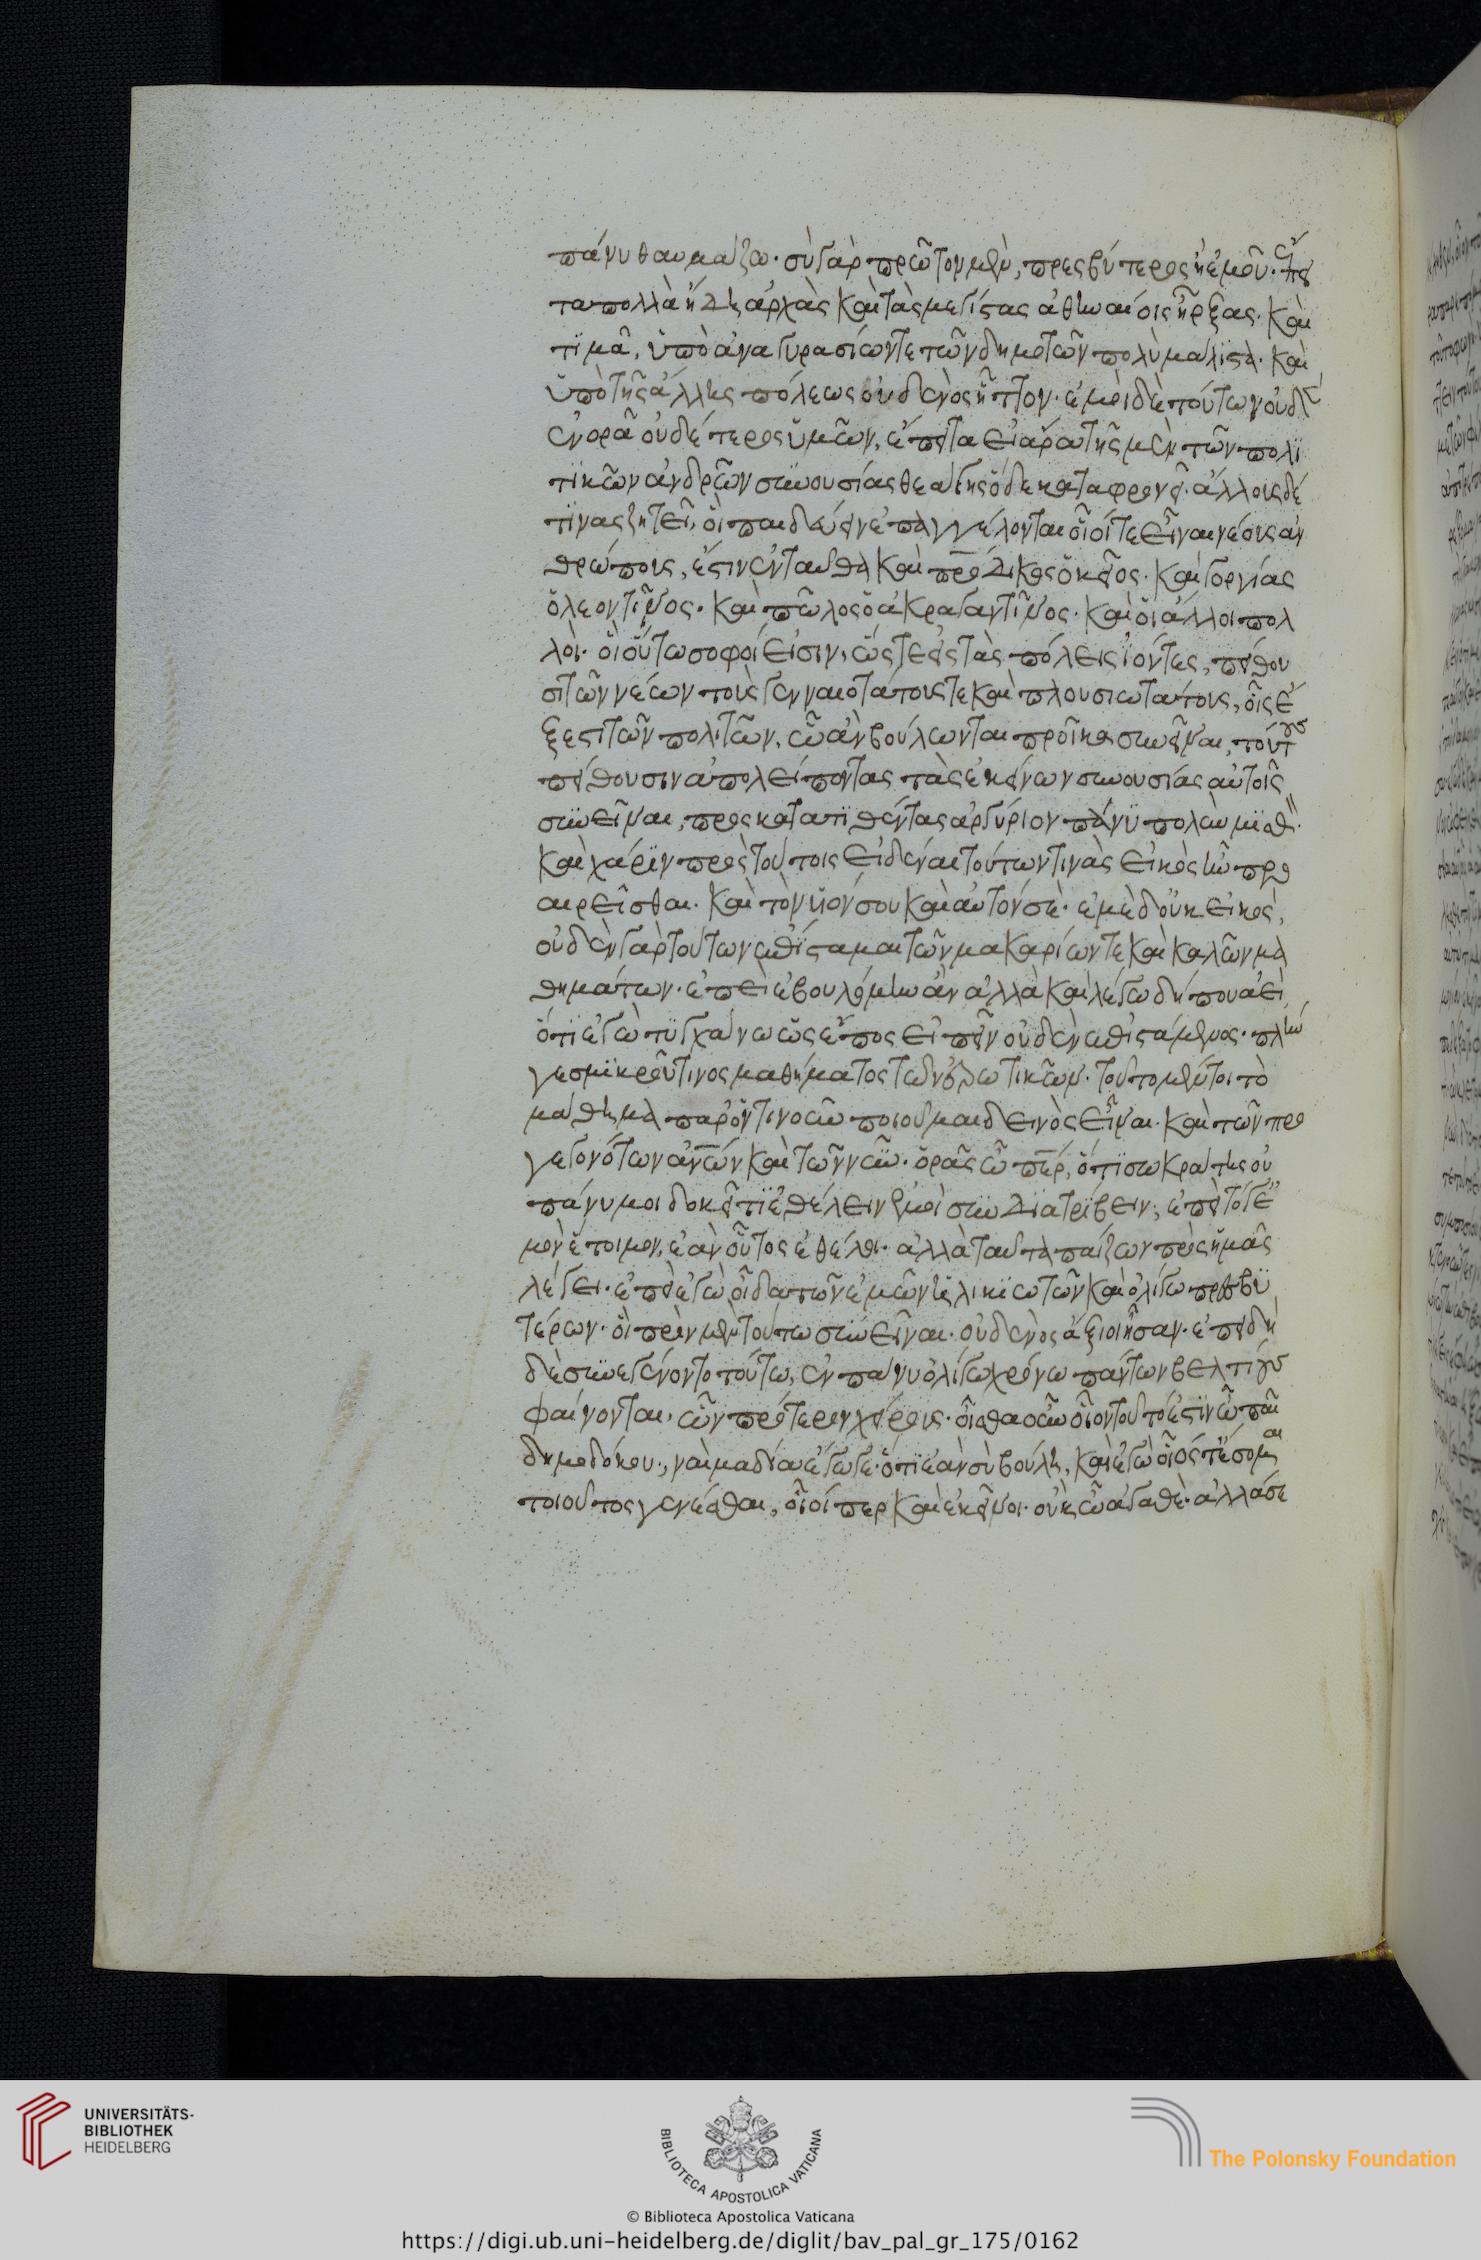 πάνυ θαυμάζω· σὺ γὰρ πρῶτον μὲν, πρεσβύτερος ἢ ἐμοῦ· ἔπει
τα πολλὰ ἤδη ἀρχὰς καὶ τὰς μεγίστας ἀθηναίοις ἦρξας· καὶ
τιμᾶ, ὑπὸ ἀναγυρασίων τε τῶν δημοτῶν πολὺ μάλιστα· καὶ
ὑπὸ τῆς ἄλλης πόλεως οὐδενὸς ἧττον· ἐμοὶ δὲ τούτων οὐδὲν
ἐνορᾶ οὐδέτερος ὑμῶν, ἔπειτα εἰ ἄρα τῆς μὲν τῶν πολι
τικῶν ἀνδρῶν συνουσίας θεάγης ὅδε καταφρονεῖ· ἄλλους δέ
τινας ζητεῖ, οἳ παιδεύειν ἐπαγγέλονται οἷοί τε εἶναι νέους ἀν
θρώπους, ἔστιν ἐνταῦθα καὶ πρόδικος ὁ κεῖος· καὶ γοργίας
ὁ λεοντῖνος· καὶ πῶλος ὁ ἀκραγαντῖνος· καὶ οἱ ἄλλοι πολ
λοὶ· οἳ οὕτω σοφοί εἰσιν, ὥστε εἰς τὰς πόλεις ἰόντες, πείθου
σι τῶν νέων τοὺς γενναιοτάτους τε καὶ πλουσιωτάτους, οἷς ἔ
ξεστι τῶν πολιτῶν, ὧ ἂν βούλωνται προῖκα συνεῖναι, τούτους
πείθουσιν ἀπολείποντας τὰς ἐκείνων συνουσίας αὐτοῖς
συνεῖναι, προσκατατιθέντας ἀργύριον πάνυ πολὺν μισθ
καὶ χάριν πρὸς τούτοις εἰδέναι τούτων τινὰς εἰκὸς ἦν προ
αιρεῖσθαι· καὶ τὸν υἱόν σου καὶ αὐτόν σὲ· ἐμὲ δ οὐκ εἰκὸς,
οὐδὲν γὰρ τούτων ἐπίσταμαι τῶν μακαρίων τε καὶ καλῶν μα
θημάτων· ἐπεὶ ἐβουλόμην ἂν ἀλλὰ καὶ λέγω δήπου ἀεὶ
ὅτι ἐγὼ τυγχάνω ὡς ἔπος εἰπεῖν οὐδὲν ἐπιστάμενος· πλὴν
γε σμικροῦ τινος μαθήματος τῶν ἐρωτικῶν· τοῦτο μέντοι τὸ
μάθημα παρ ὁντινοῦν ποιοῦμαι δεινὸς εἶναι· καὶ τῶν προ
γεγονότων ἀν̅ῶν καὶ τῶν νῦν· ὁρᾶς ὦ π̅ερ, ὅτι σωκράτης οὐ
πάνυ μοι δοκεῖ τι ἐθέλειν ἐμοὶ συνδιατρίβειν, ἐπεὶ τό γε
μὸν ἕτοιμον, ἐὰν οὗτος ἐθέλη· ἀλλὰ ταῦτα παίζων πρὸς ἡμᾶς
λέγει· ἐπεὶ ἐγὼ οἶδα τῶν ἐμῶν ἡλικιωτῶν καὶ ὀλίγω πρεσβυ
τέρων· οἳ πρὶν μὲν τούτω συνεῖναι· οὐδενὸς ἄξιοι ἦσαν· ἐπειδὴ
δὲ συνεγένοντο τούτω, ἐν πάνυ ὀλίγω χρόνω πάντων βελτίους
φαίνονται, ὧν πρότερον χείρους· οἶσθα οὖν οἷον τοῦτό ἐστιν ὦ παῖ
δημοδόκου, ναὶ μὰ δία ἔγωγε· ὅτι ἐὰν σὺ βούλη, καὶ ἐγὼ οἷός τ ἔσομαι
τοιοῦτος γενέσθαι, οἷοί περ καὶ ἐκεῖνοι· οὐκ ὦ ἀγαθὲ· ἀλλά σε
UNIVERSITÄTS-
BIBLIOTHEK
HEIDELBERG
BIBLIOTECA APOSTOLICA VATICANA
The Polonsky Foundation
© Biblioteca Apostolica Vaticana
https://digi.ub.uni-heidelberg.de/diglit/bav_pal_gr_175/0162